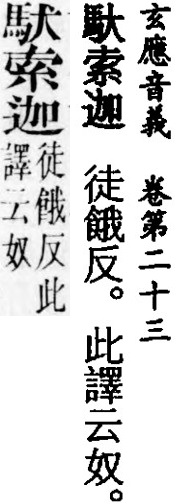 玄應音義　卷第二十三
馱索迦　徒餓反。此譯云奴。
馱索迦
徒餓反此
譯云奴